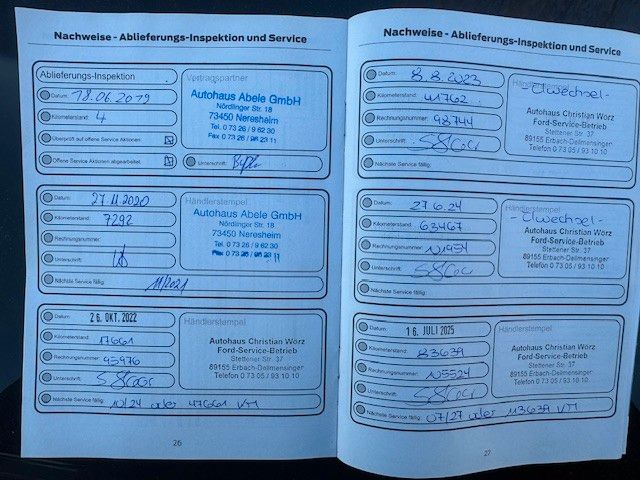 Nachweise - Ablieferungs-Inspektion und Service
Ablieferungs-Inspektion
Datum: 18.06.2019
Kilometerstand: 4
Überprüft auf offene Service Aktionen
Offene Service Aktionen abgearbeitet
Vertragspartner
Autohaus Abele GmbH
Nördlinger Str. 18
73450 Neresheim
Tel. 0 73 26 / 9 62 30
Unterschrift:
Datum: 27.11.2020
Kilometerstand: 7292
Rechnungsnummer:
Unterschrift:
Händlerstempel
Autohaus Abele GmbH
Nördlinger Str. 18
73450 Neresheim
Tel. 0 73 26 / 9 62 30
Nächste Service fällig: 11/2021
Datum: 26. OKT. 2022
Kilometerstand: 17661
Rechnungsnummer: 95976
Unterschrift:
Händlerstempel
Autohaus Christian Wörz
Ford-Service-Betrieb
Stettener Str. 37
89155 Erbach-Dellmensingen
Telefon 0 73 05 / 93 10 10
Nächste Service fällig: 10/24 oder 47661 KM
26
Nachweise - Ablieferungs-Inspektion und Service
Datum: 8.8.2023
Kilometerstand: 41762
Rechnungsnummer: 98744
Unterschrift:
Ölwechsel -
Autohaus Christian Wörz
Ford-Service-Betrieb
Stettener Str. 37
89155 Erbach-Dellmensingen
Telefon 0 73 05 / 93 10 10
Nächste Service fällig:
Datum: 27.6.24
Kilometerstand: 63467
Rechnungsnummer: 101954
Unterschrift:
Händlerstempel
- Ölwechsel -
Autohaus Christian Wörz
Ford-Service-Betrieb
Stettener Str. 37
89155 Erbach-Dellmensingen
Telefon 0 73 05 / 93 10 10
Nächste Service fällig:
Datum: 16. JULI 2025
Kilometerstand: 83639
Rechnungsnummer: 105524
Unterschrift:
Händlerstempel
Autohaus Christian Wörz
Ford-Service-Betrieb
Stettener Str. 37
89155 Erbach-Dellmensingen
Telefon 0 73 05 / 93 10 10
Nächste Service fällig: 07/27 oder 113639 KM
27